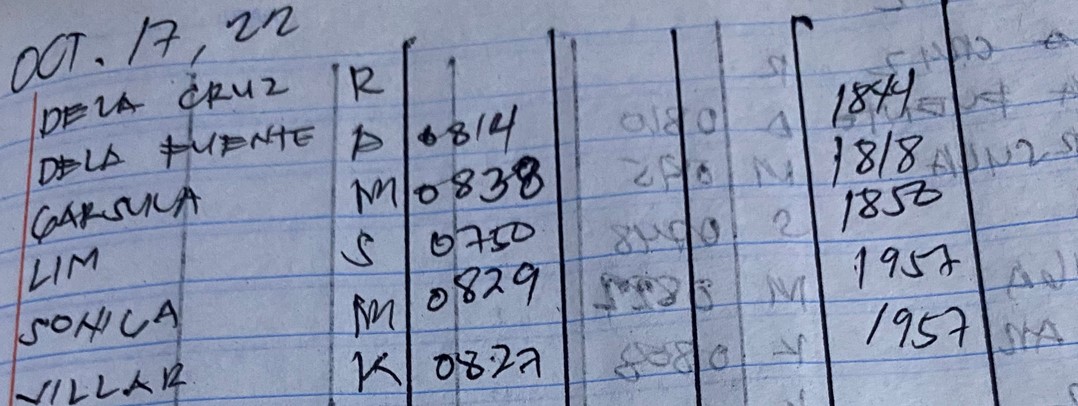 OCT. 17, 22
DELA CRUZ R
DELA FUENTE A 0814 1844
GARSULA M 0838 1818
LIM S 0750 1850
SONICA M 0829 1957
VILLAR K 0827 1957